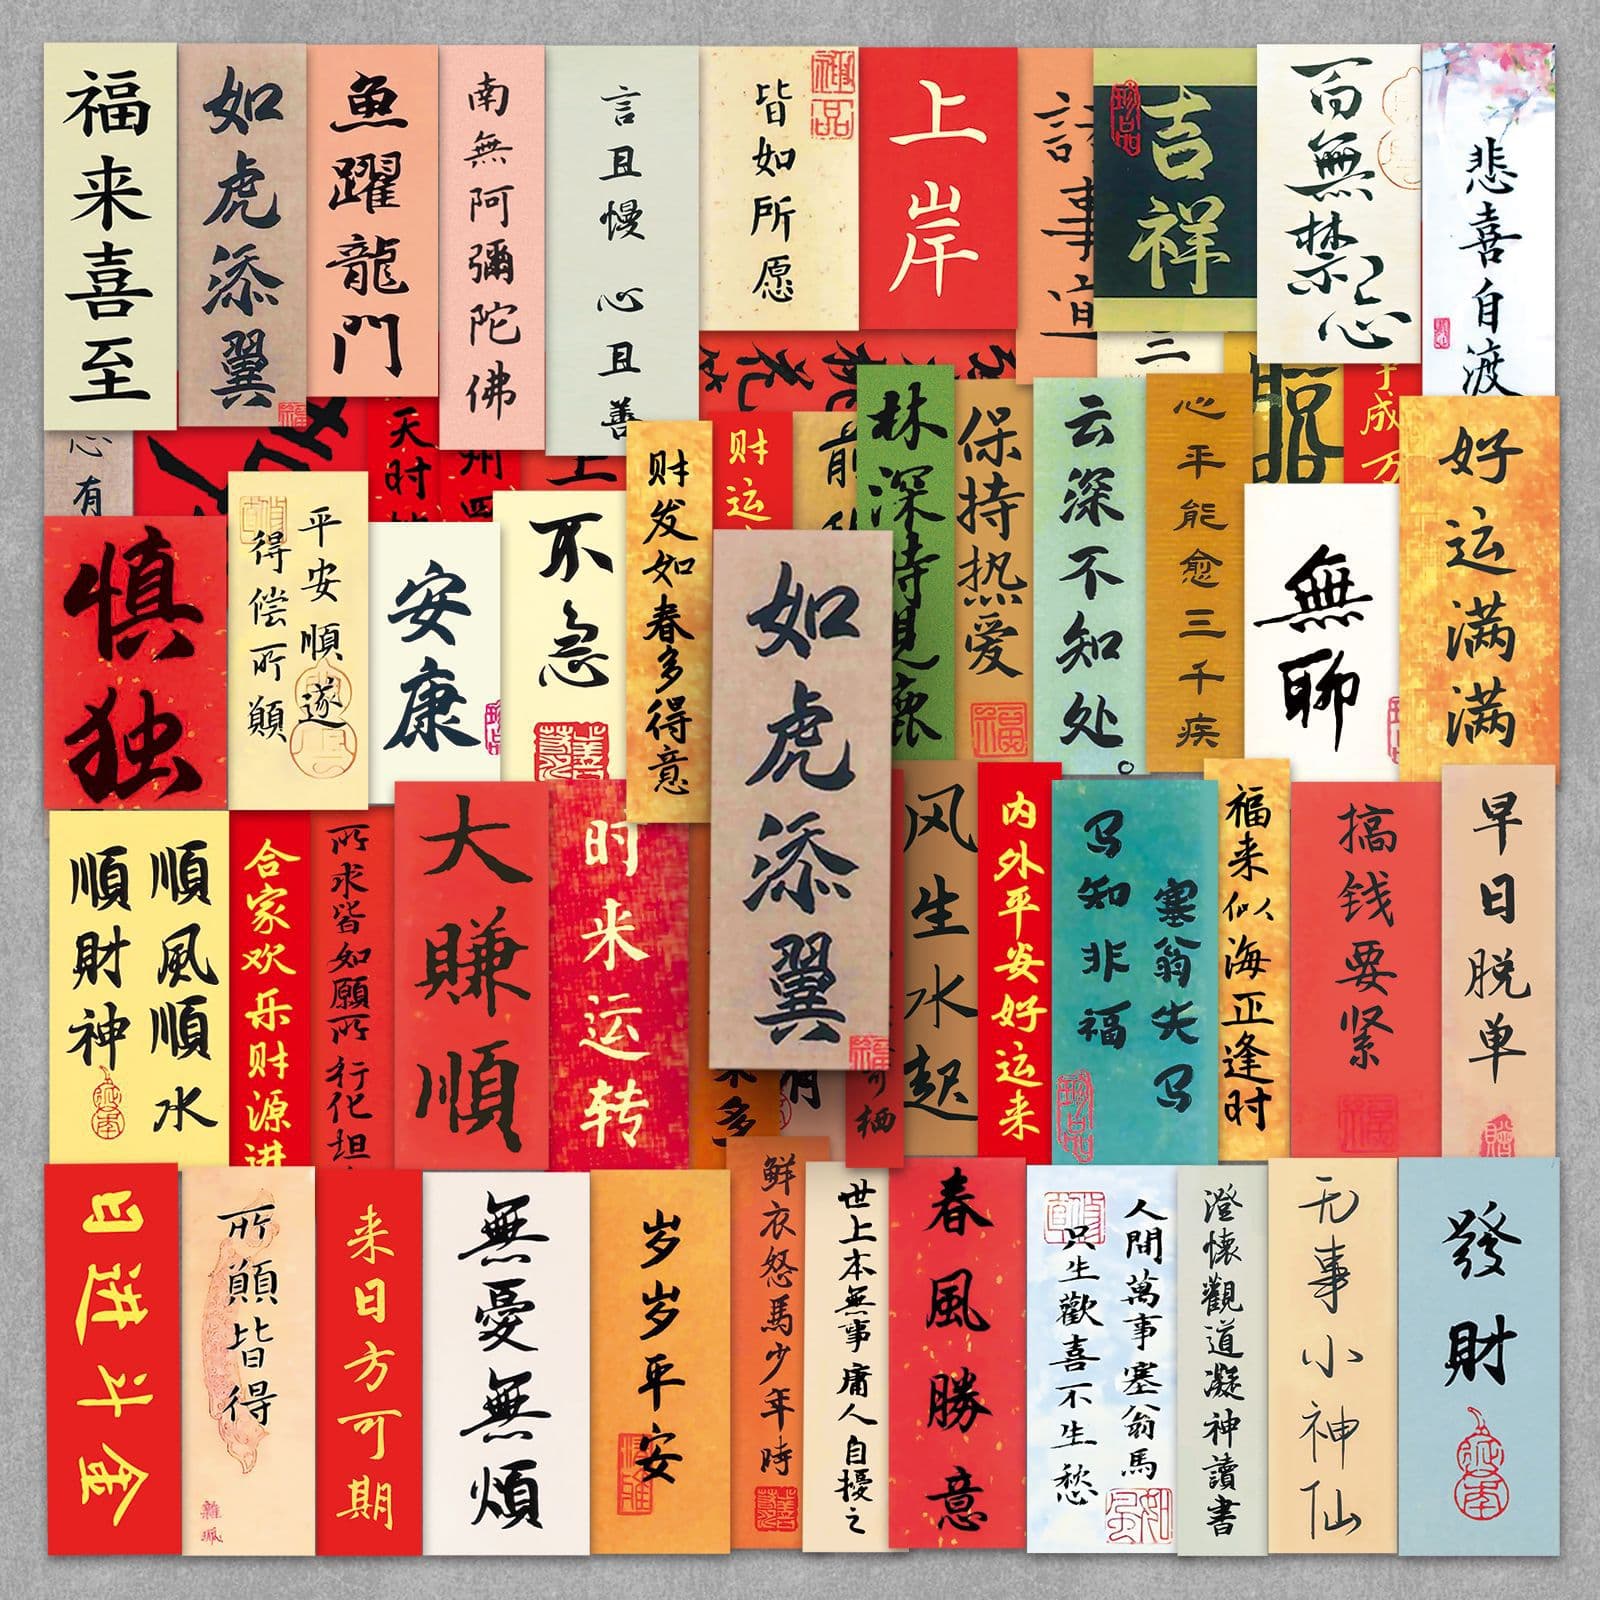 福来喜至
如虎添翼
魚躍龍門
南無阿彌陀佛
言且慢
心且善
皆如所愿
上岸
事
吉祥
百無禁忌
悲喜自渡
心有
天时
州四
上
财运
前
林深時見鹿
保持热爱
云深不知处。
心平能愈三千疾
二
成万
好运满满
慎独
平安順遂
得偿所願
安康
不急
财发如春多得意
如虎添翼
無聊
順風順水
順財神
合家欢乐财源进
所求皆如願所行化坦
大賺順
时来运转
来多
有
可栖
风生水起
内外平安好运来
塞翁失马
马知非福
福来似海正逢时
搞钱要紧
早日脱单
日进斗金
所願皆得
来日方可期
無憂無煩
岁岁平安
鮮衣怒馬少年時
世上本無事庸人自擾之
春風勝意
人間萬事塞翁馬
只生歡喜不生愁
澄懷觀道凝神讀書
无事小神仙
發財